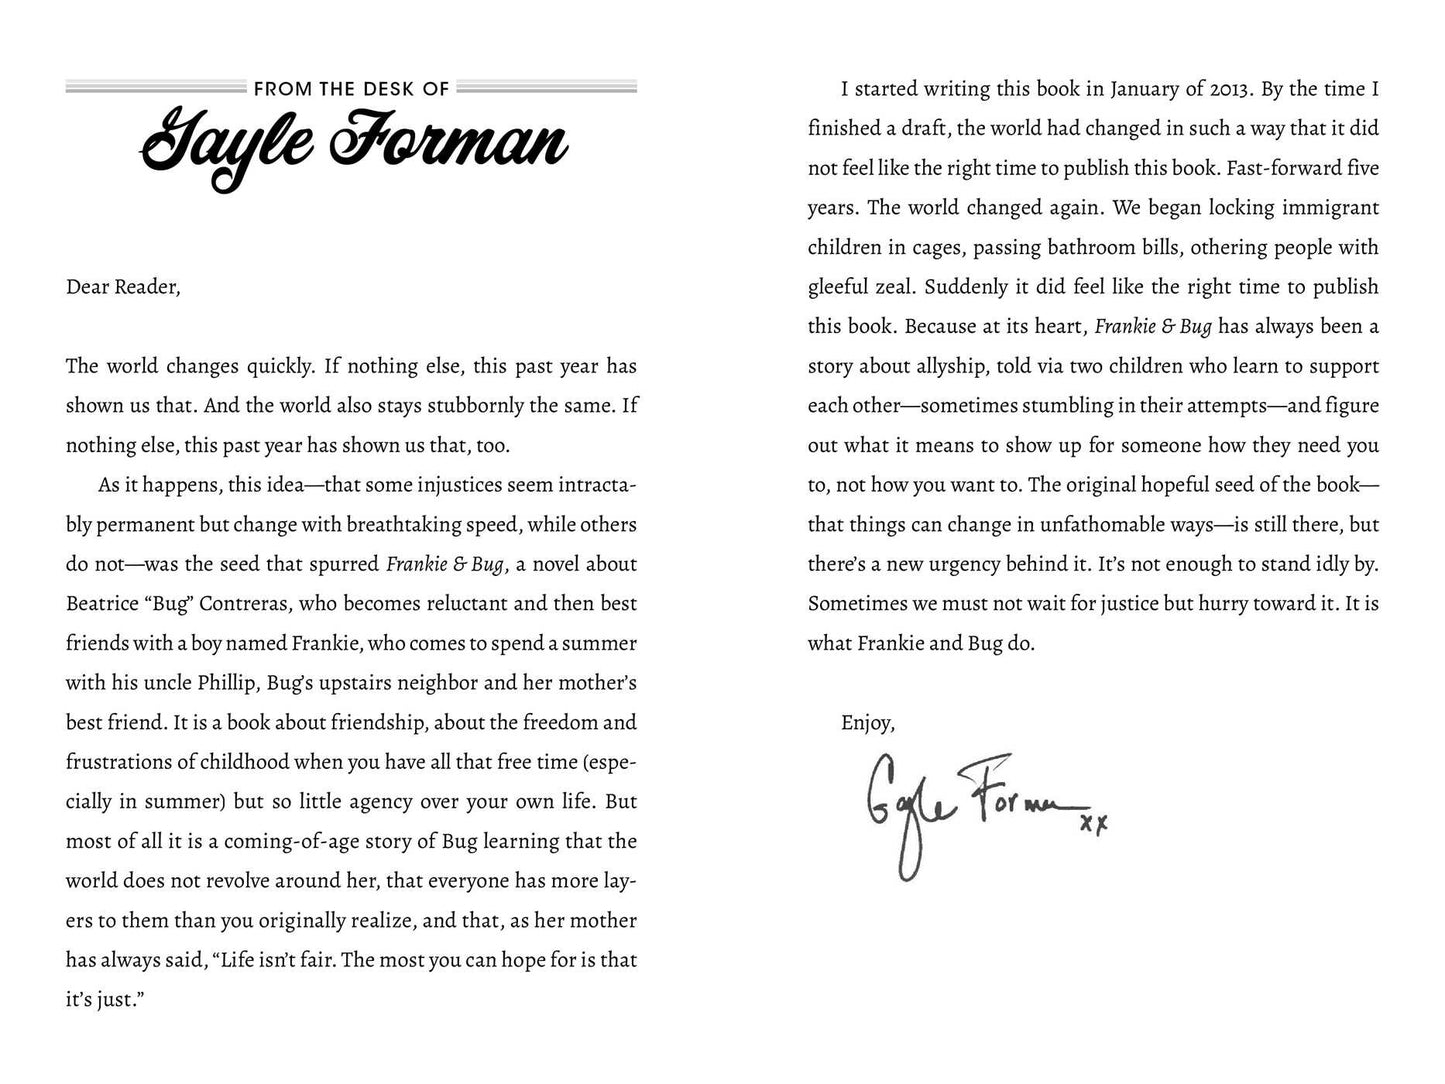 FROM THE DESK OF
Gayle Forman
Dear Reader,
The world changes quickly. If nothing else, this past year has
shown us that. And the world also stays stubbornly the same. If
nothing else, this past year has shown us that, too.
As it happens, this idea—that some injustices seem intracta-
bly permanent but change with breathtaking speed, while others
do not—was the seed that spurred Frankie & Bug, a novel about
Beatrice “Bug” Contreras, who becomes reluctant and then best
friends with a boy named Frankie, who comes to spend a summer
with his uncle Phillip, Bug’s upstairs neighbor and her mother’s
best friend. It is a book about friendship, about the freedom and
frustrations of childhood when you have all that free time (espe-
cially in summer) but so little agency over your own life. But
most of all it is a coming-of-age story of Bug learning that the
world does not revolve around her, that everyone has more lay-
ers to them than you originally realize, and that, as her mother
has always said, “Life isn’t fair. The most you can hope for is that
it’s just.”
I started writing this book in January of 2013. By the time I
finished a draft, the world had changed in such a way that it did
not feel like the right time to publish this book. Fast-forward five
years. The world changed again. We began locking immigrant
children in cages, passing bathroom bills, othering people with
gleeful zeal. Suddenly it did feel like the right time to publish
this book. Because at its heart, Frankie & Bug has always been a
story about allyship, told via two children who learn to support
each other—sometimes stumbling in their attempts—and figure
out what it means to show up for someone how they need you
to, not how you want to. The original hopeful seed of the book—
that things can change in unfathomable ways—is still there, but
there’s a new urgency behind it. It’s not enough to stand idly by.
Sometimes we must not wait for justice but hurry toward it. It is
what Frankie and Bug do.
Enjoy,
Gayle Forman
xx